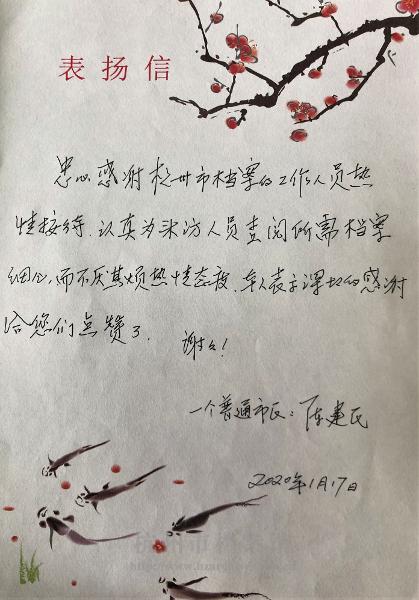 表扬信
忠心感谢杭州市档案的工作人员热
情接待、认真为来访人员查阅所需档案
细心,而不厌其烦热情态度、本人表示深切的感谢
给您们点赞了. 谢谢!
一个普通市民:陈建民
2020年1月17日
杭州市档案
http://www.hzarchives